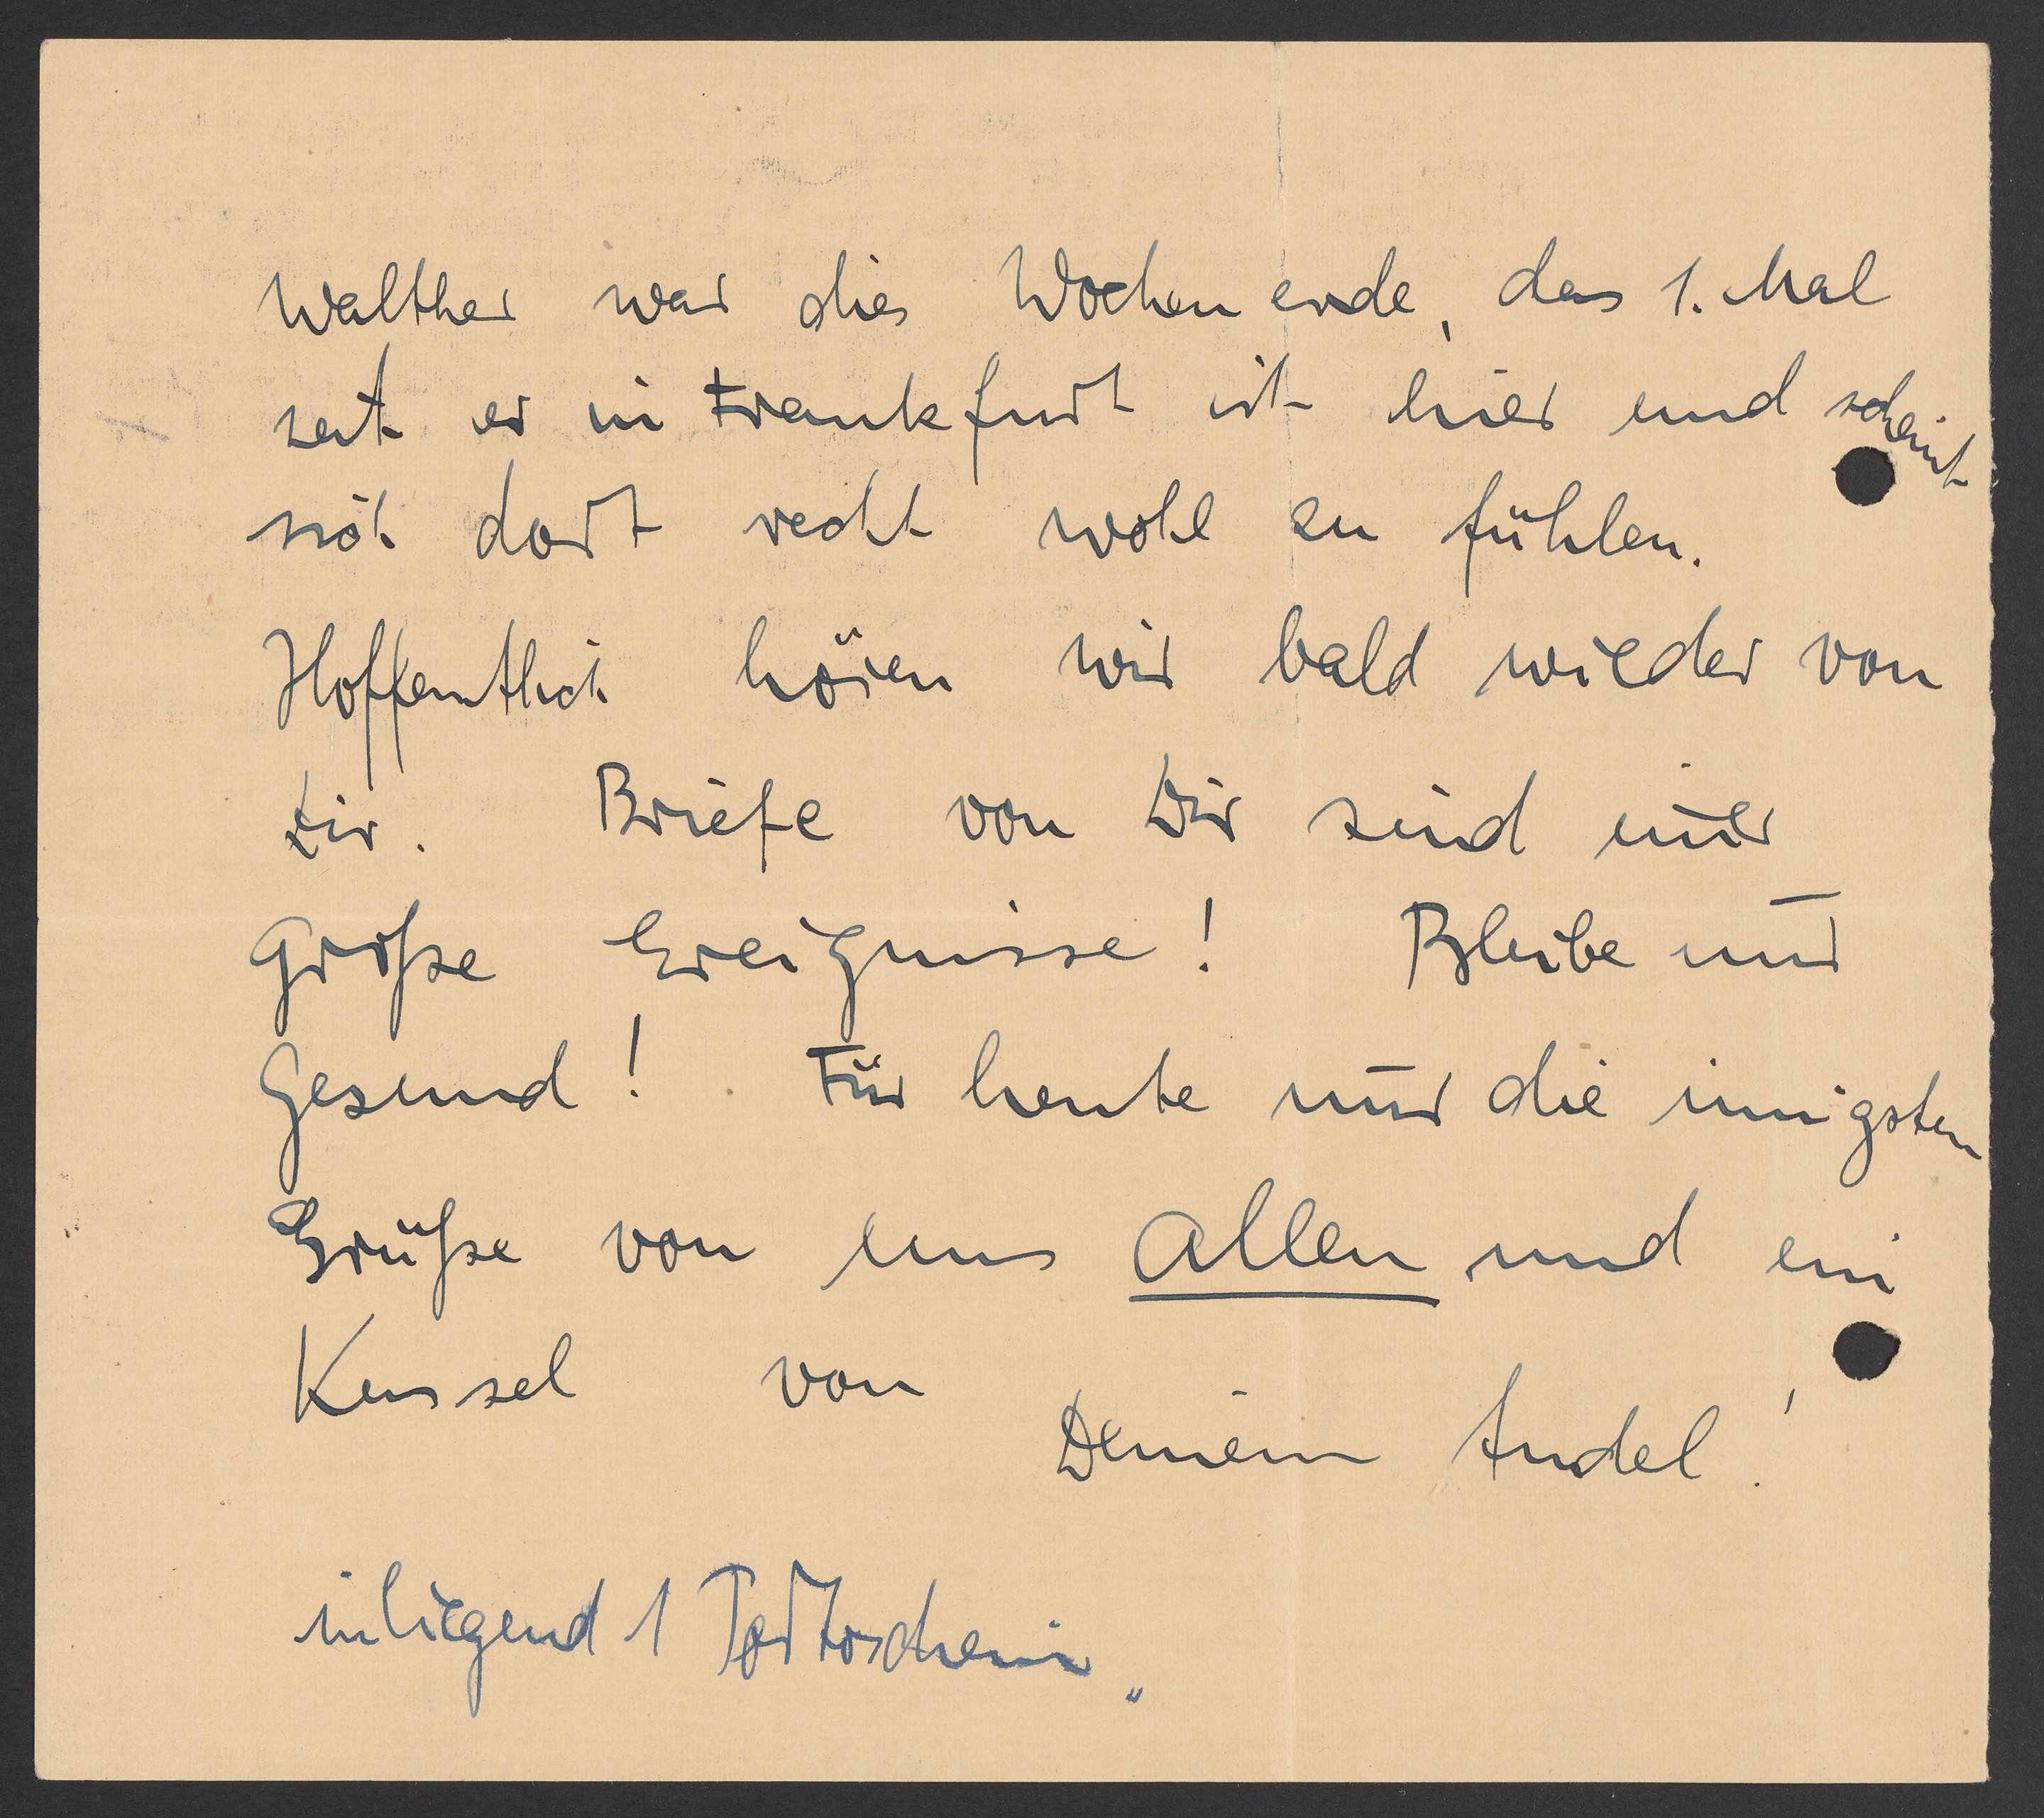 Walther war dies Wochenende, das 1. Mal
seit er in Frankfurt ist hier und scheint
sich dort recht wohl zu fühlen.
Hoffentlich hören wir bald wieder von
Dir. Briefe von Dir sind im̄er
große Ereignisse! Bleibe nur
gesund! Für heute nur die innigsten
Grüße von uns allen und ein
Kussel von
Deinem
inliegend 1 Portoschein"